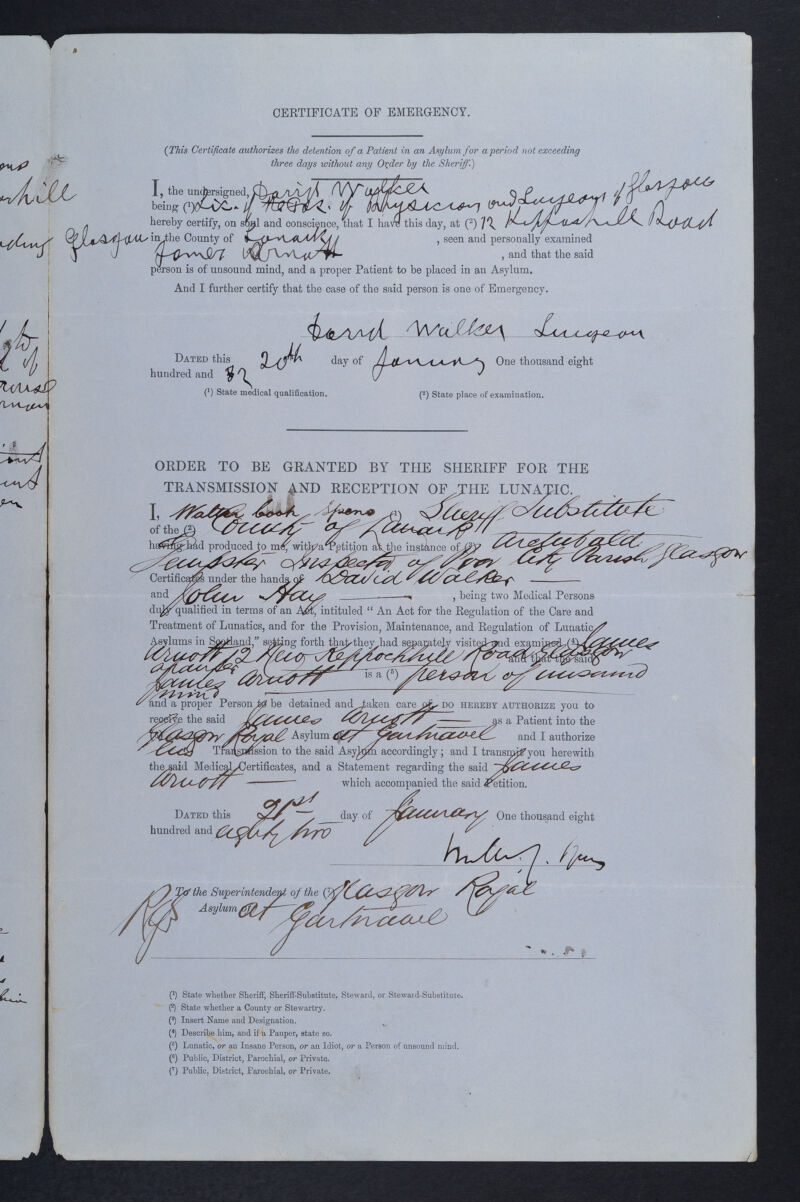 CERTIFICATE OF EMERGENCY.
(This Certificate authorizes the detention of a Patient in an Asylum for a period not exceeding
three days without any Order by the Sheriff.)
I, the undersigned, David Walker
being (¹) Lic. of Physicians and Surgeons of Glasgow
hereby certify, on soul and conscience, that I have this day, at (²) 12 Keppochhill Road
Glasgow in the County of Lanark , seen and personally examined
James Arnott , and that the said
person is of unsound mind, and a proper Patient to be placed in an Asylum.
And I further certify that the case of the said person is one of Emergency.
David Walker Surgeon
DATED this 20th day of January One thousand eight
hundred and 82
(¹) State medical qualification. (²) State place of examination.
ORDER TO BE GRANTED BY THE SHERIFF FOR THE
TRANSMISSION AND RECEPTION OF THE LUNATIC.
I, Walter Cook Spens (¹) Sheriff Substitute
of the (²) County of Lanark
having had produced to me, with a Petition at the instance of (³) Archibald
Dempster Inspector of Poor City Parish Glasgow
Certificates under the hands of David Walker
and John Hay , being two Medical Persons
duly qualified in terms of an Act, intituled “ An Act for the Regulation of the Care and
Treatment of Lunatics, and for the Provision, Maintenance, and Regulation of Lunatic
Asylums in Scotland,” setting forth that they had separately visited and examined (⁴) James
Arnott 12 New Keppochhill Road Glasgow
a pauper and that the said
James Arnott is a (⁵) person of unsound
mind
and a proper Person to be detained and taken care of, DO HEREBY AUTHORIZE you to
receive the said James Arnott as a Patient into the
Glasgow Royal Asylum at Gartnavel and I authorize
his Transmission to the said Asylum accordingly ; and I transmit you herewith
the said Medical Certificates, and a Statement regarding the said James
Arnott which accompanied the said Petition.
DATED this 21st day of January One thousand eight
hundred and eighty two
To the Superintendent of the (⁷) Glasgow Royal
Asylum at Gartnavel
(¹) State whether Sheriff, Sheriff-Substitute, Steward, or Steward-Substitute.
(²) State whether a County or Stewartry.
(³) Insert Name and Designation.
(⁴) Describe him, and if a Pauper, state so.
(⁵) Lunatic, or an Insane Person, or an Idiot, or a Person of unsound mind.
(⁶) Public, District, Parochial, or Private.
(⁷) Public, District, Parochial, or Private.